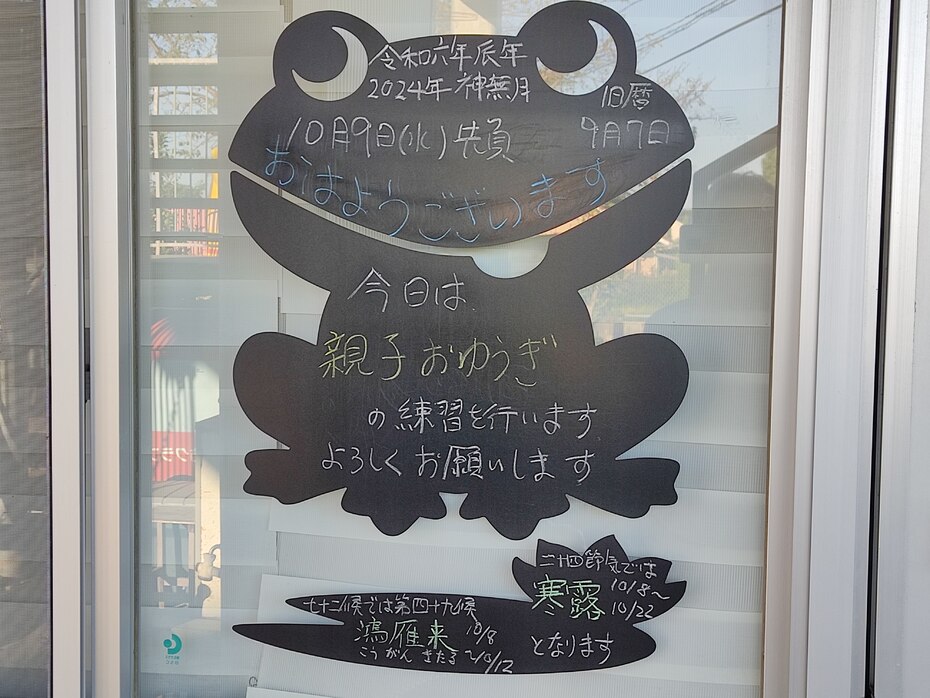 令和六年辰年
2024年 神無月
旧暦
10月9日(水)先負
9月7日
おはようございます
今日は
親子おゆうぎ
の練習を行います
よろしくお願いします
二十四節気では
寒露 10/8~
10/22
となります
七十二候では第四十九候
鴻雁来 10/8
こうがん きたる ~10/12